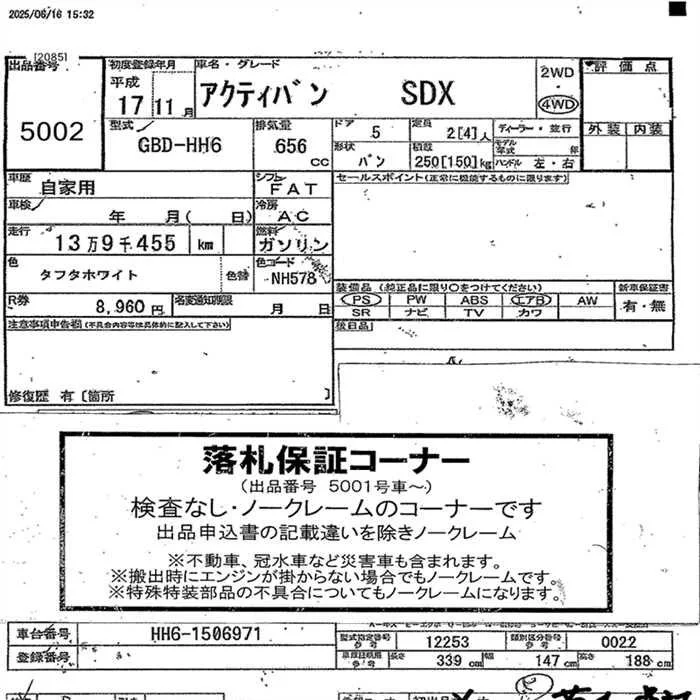 2025/06/16 15:32
[2085]
出品番号 初度登録年月 車名・グレード 2WD 評価点
平成 17 11月 アクティバン SDX 4WD
5002 外装 内装
型式 排気量 ドア 5 定員 2[4]人 ディーラー・並行
GBD-HH6 656 cc 形状 バン 積載 250[150]kg モデル年式 年
ハンドル 左・右
車歴 自家用 シフト FAT セールスポイント(正常に機能するものに限ります)
車検 年 月( 日) 冷房 AC
走行 13万9千455 km 燃料 ガソリン
色 タフタホワイト 色替 色コード NH578
装備品(純正品に限り○をつけてください) 新車保証書
PS PW ABS エアB AW 有・無
SR ナビ TV カワ
R券 8,960円 名変通知期限 月 日
注意事項申告欄(不具合内容等は具体的に記入して下さい) 後日品
修復歴 有[箇所 ]
落札保証コーナー
(出品番号 5001号車~)
検査なし・ノークレームのコーナーです
出品申込書の記載違いを除きノークレーム
※不動車、冠水車など災害車も含まれます。
※搬出時にエンジンが掛からない場合でもノークレームです。
※特殊特装部品の不具合についてもノークレームになります。
車台番号 HH6-1506971 型式指定番号 参考 12253 類別区分番号 参考 0022
登録番号 車庫証明用 参考 長さ 339cm 幅 147cm 高さ 188cm